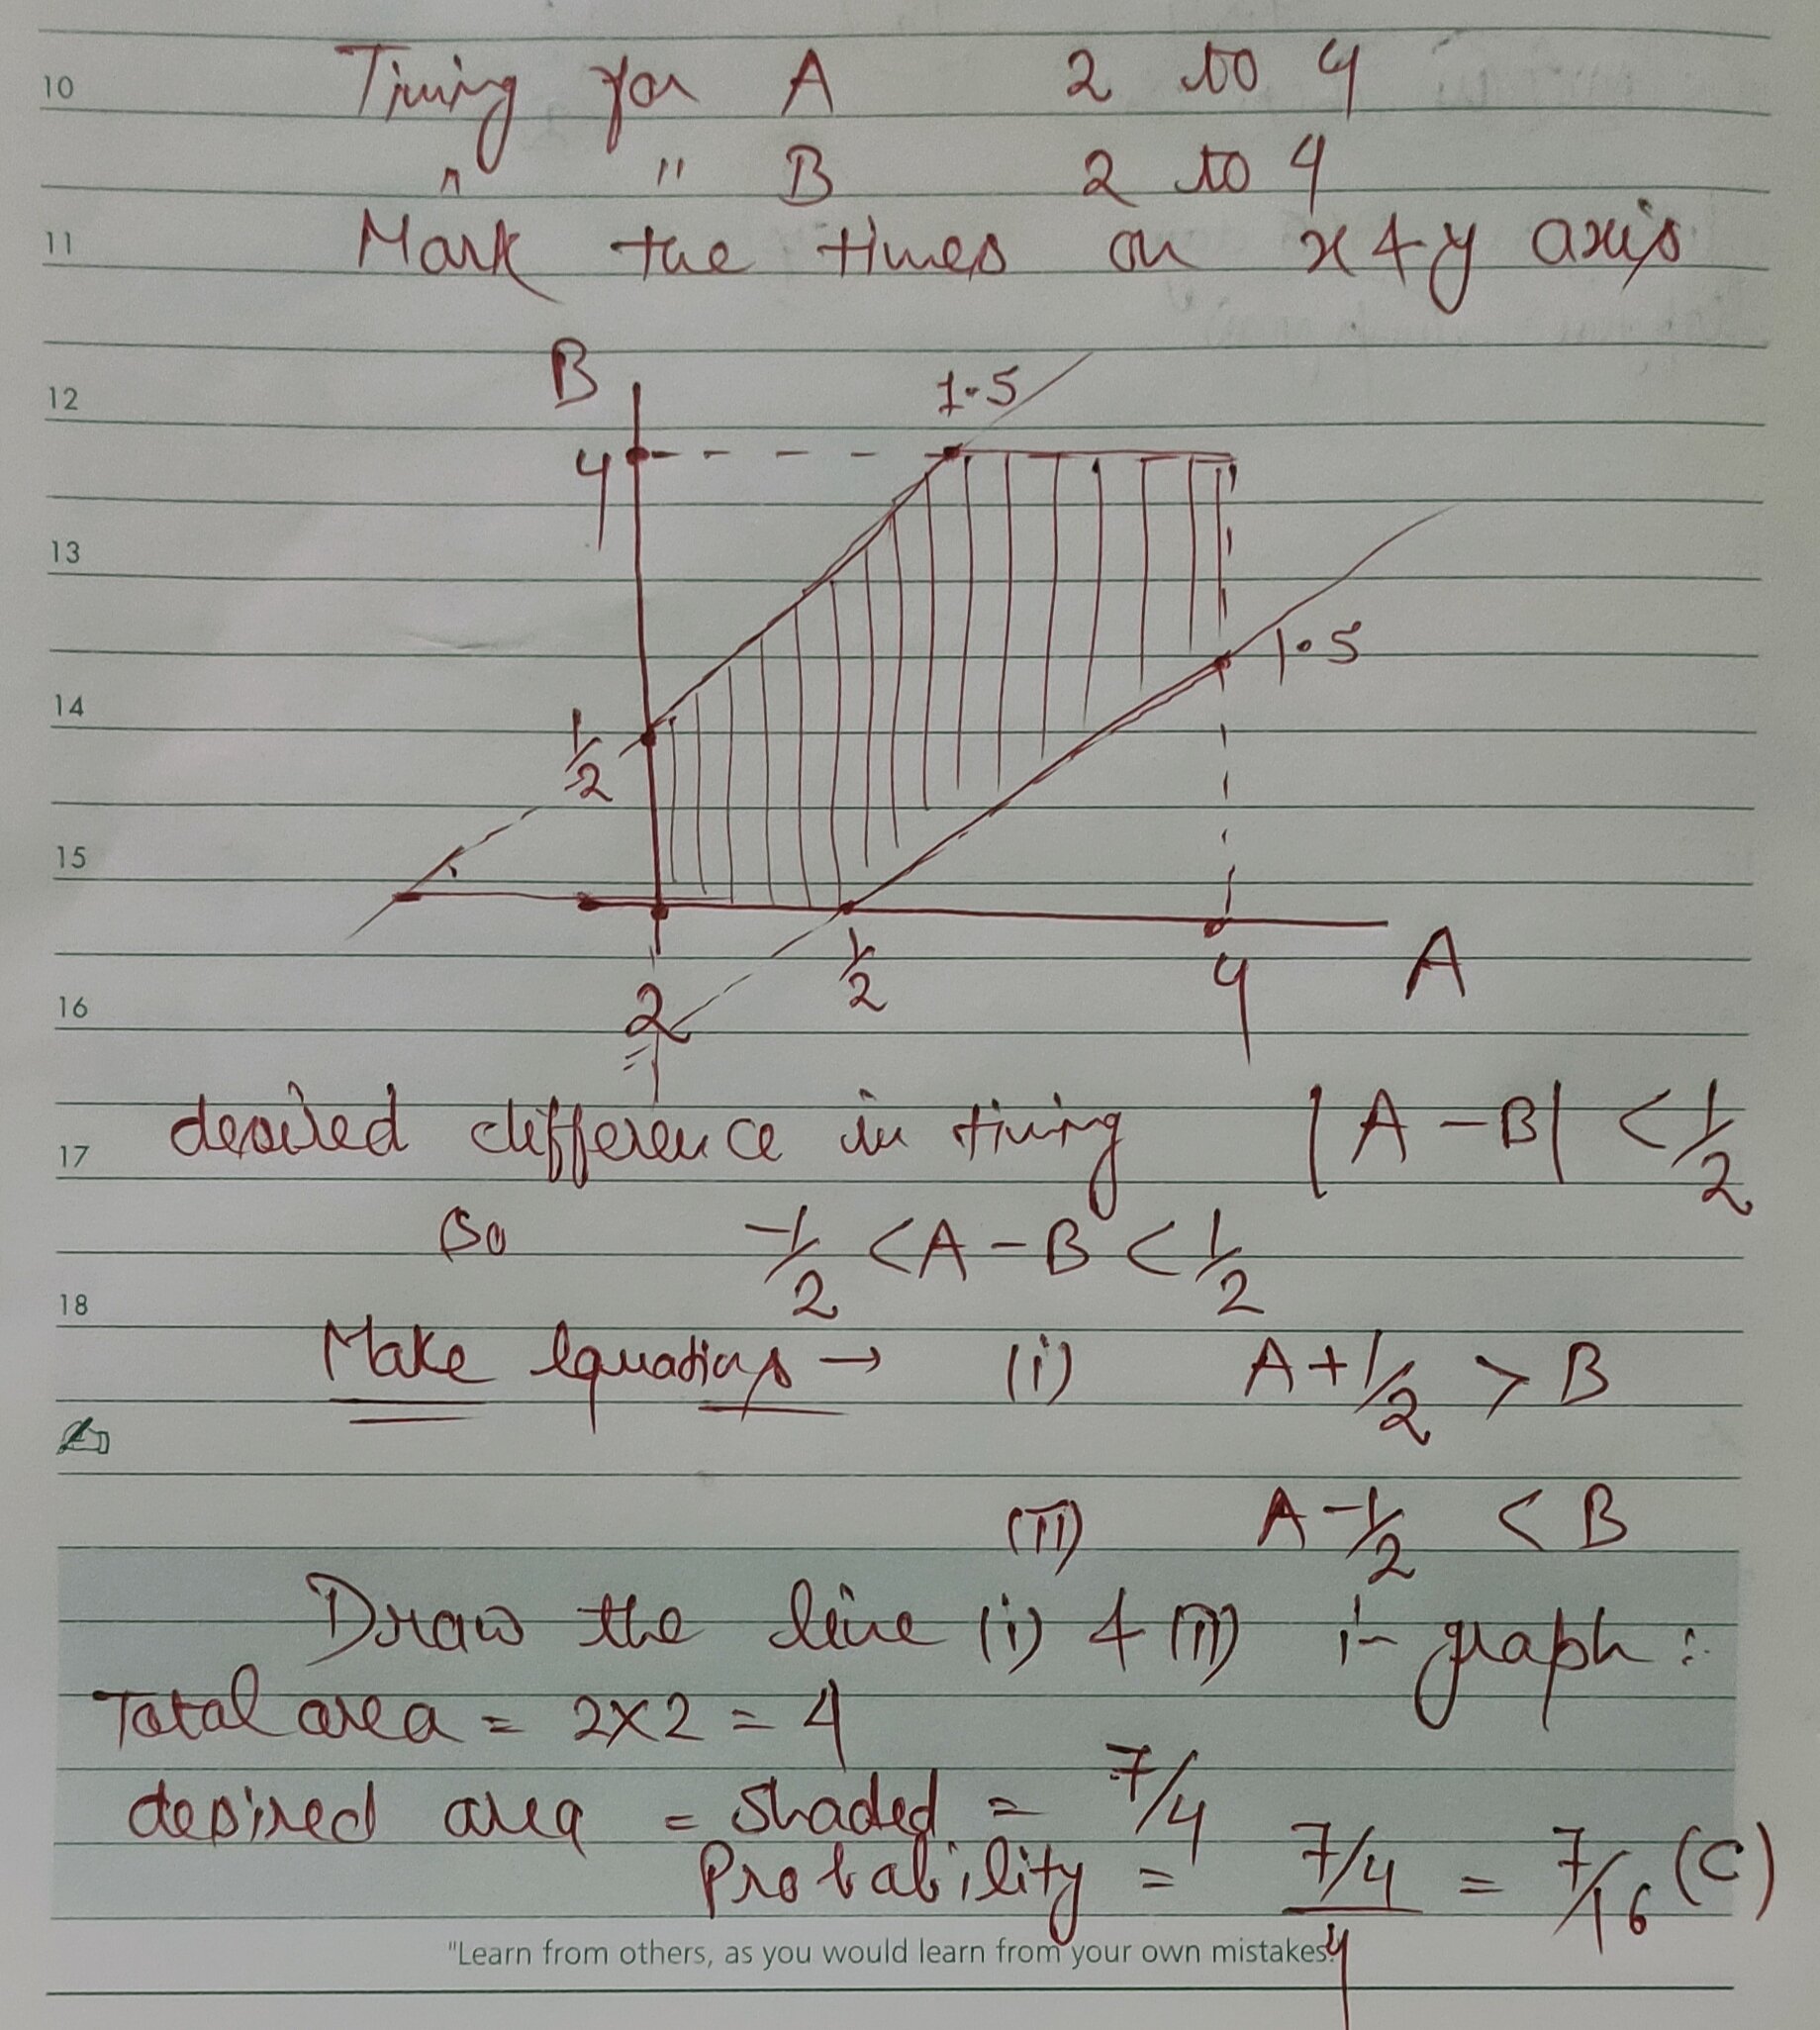 10 Timing for A 2 to 4
" " B 2 to 4
11 Mark the times on x & y axis
B
12
1.5
4
13
1.5
14
1/2
15
1/2
4
A
16
2
desired difference in timing |A - B| < 1/2
17
so -1/2 < A - B < 1/2
18
Make equations → (i) A + 1/2 > B
(ii) A - 1/2 < B
Draw the line (i) & (ii) in graph :
Total area = 2x2 = 4
desired area = shaded = 7/4
Probability = 7/4 / 4 = 7/16 (C)
"Learn from others, as you would learn from your own mistakes."